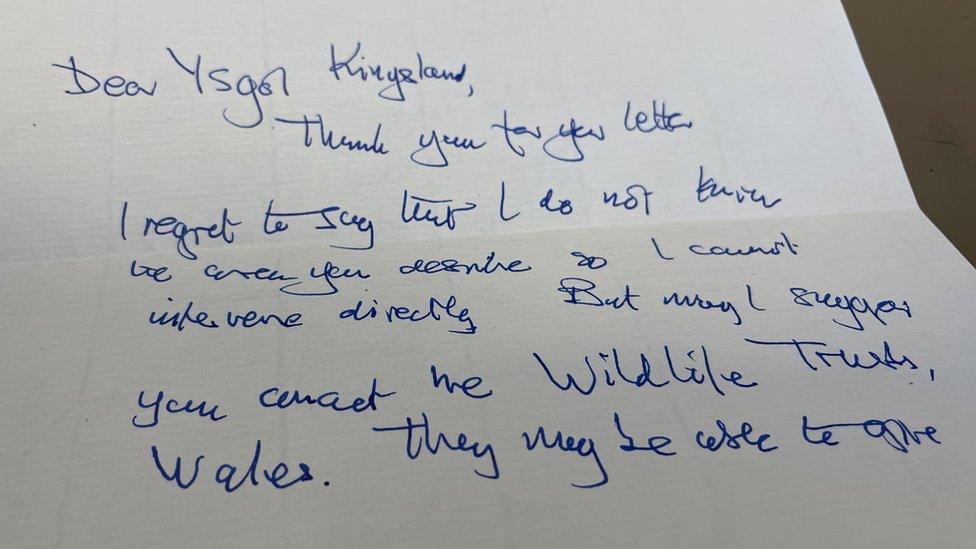 Dear Ysgol Kingsland,
Thank you for your letter
I regret to say that I do not know
the area you describe so I cannot
intervene directly But may I suggest
you contact the Wildlife Trusts,
Wales. They may be able to give